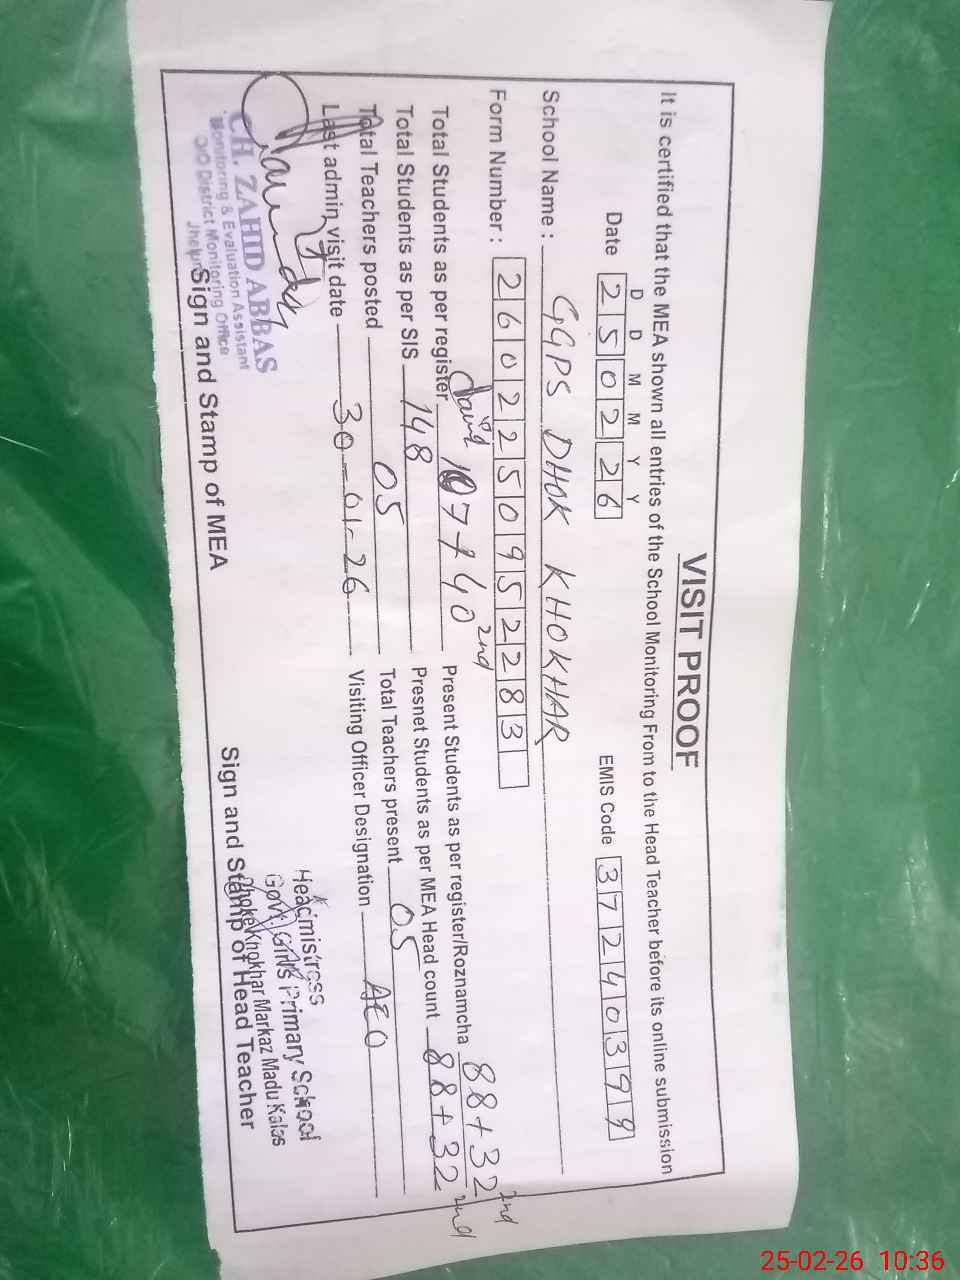 VISIT PROOF
It is certified that the MEA shown all entries of the School Monitoring From to the Head Teacher before its online submission
D D M M Y Y
Date 2 5 0 2 2 6 EMIS Code 3 7 2 4 0 3 9 9
School Name : GGPS DHOK KHOKHAR
Form Number : 2 6 0 2 2 5 0 9 5 2 2 8 3
Total Students as per register 107+40 2nd Present Students as per register/Roznamcha 88+32 2nd
Total Students as per SIS 148 Presnet Students as per MEA Head count 88+32 2nd
Total Teachers posted 05 Total Teachers present 05
Last admin visit date 30-01-26 Visiting Officer Designation AEO
CH. ZAHID ABBAS
Monitoring & Evaluation Assistant
O/O District Monitoring Office
Jhelum
Headmistress
Govt. Girls Primary School
Dhoke Khokhar Markaz Madu Kalas
Sign and Stamp of MEA Sign and Stamp of Head Teacher
25-02-26 10:36